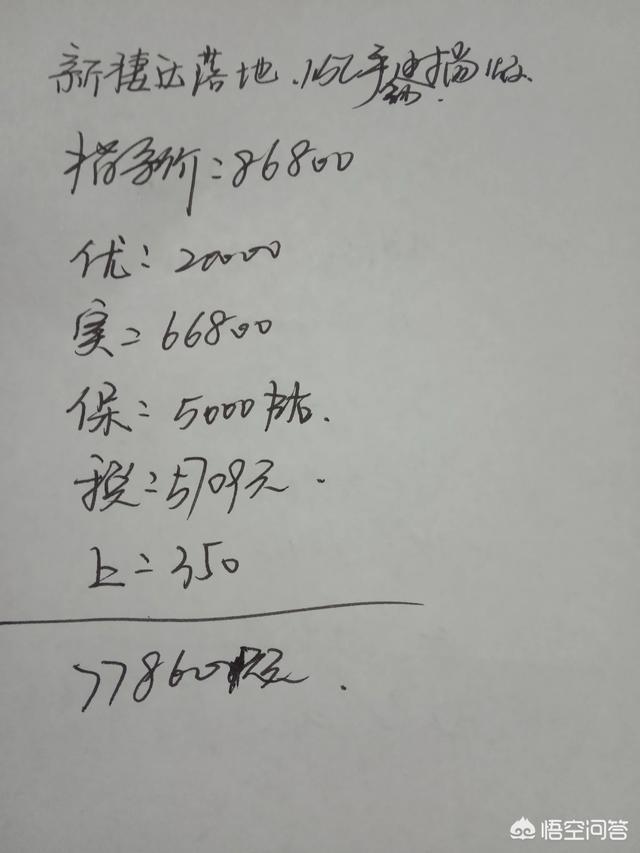 新捷达落地.1.5L手动时尚版.
指导价:86800
优:20000
实:66800
保:5000左右.
税:5709元.
上:350
77860元.
悟空问答